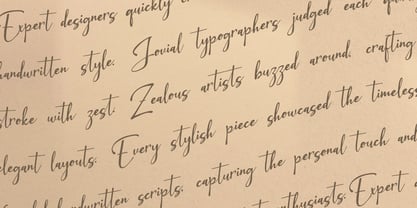 Expert designers quickly
handwritten style. Jovial typographers judged each
stroke with zest. Zealous artists buzzed around, crafting
elegant layouts. Every stylish piece showcased the timeless
handwritten scripts, capturing the personal touch and
enthusiasts. Expert